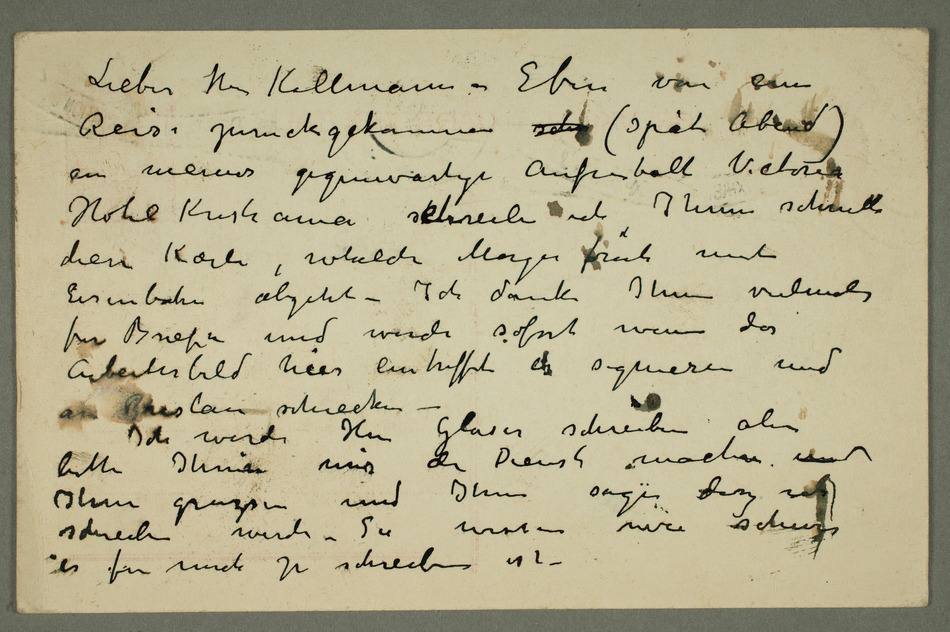 Lieber Herr Kollmann – Eben von eine
Reise zurückgekommen (spät Abend)
in meines gegenwärtige Aufenthalt Victoria
Hotel Kristiania schreibe ich Ihnen schnell
diese Karte, welche Morgen früh mit
Eisenbahn abgeht – Ich danke Ihnen vielmals
für Briefe und werde sofort wenn das
Arbeiterbild hier eintrifft es signieren und
an Breslau schicken –
Ich werde Herr Glaser schreiben aber
bitte Ihnen mir den Dienst machen und
Ihm grüssen und Ihm sagen dass ich
schreiben werde – Sie wissen wie schwer
es für mich zu schreiben ist –